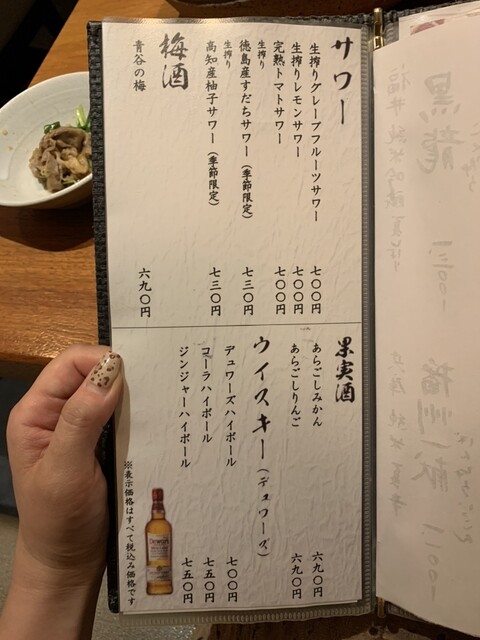 サワー
生搾りグレープフルーツサワー 七〇〇円
生搾りレモンサワー 七〇〇円
完熟トマトサワー 七〇〇円
生搾り
徳島産すだちサワー（季節限定） 七三〇円
生搾り
高知産柚子サワー（季節限定） 七三〇円
梅酒
青谷の梅 六九〇円
果実酒
あらごしみかん 六九〇円
あらごしりんご 六九〇円
ウイスキー（デュワーズ）
デュワーズハイボール 七〇〇円
コーラハイボール 七五〇円
ジンジャーハイボール 七五〇円
※表示価格はすべて税込み価格です
Dewar's
黒龍
福井
1,300-
播州一献
1,100-